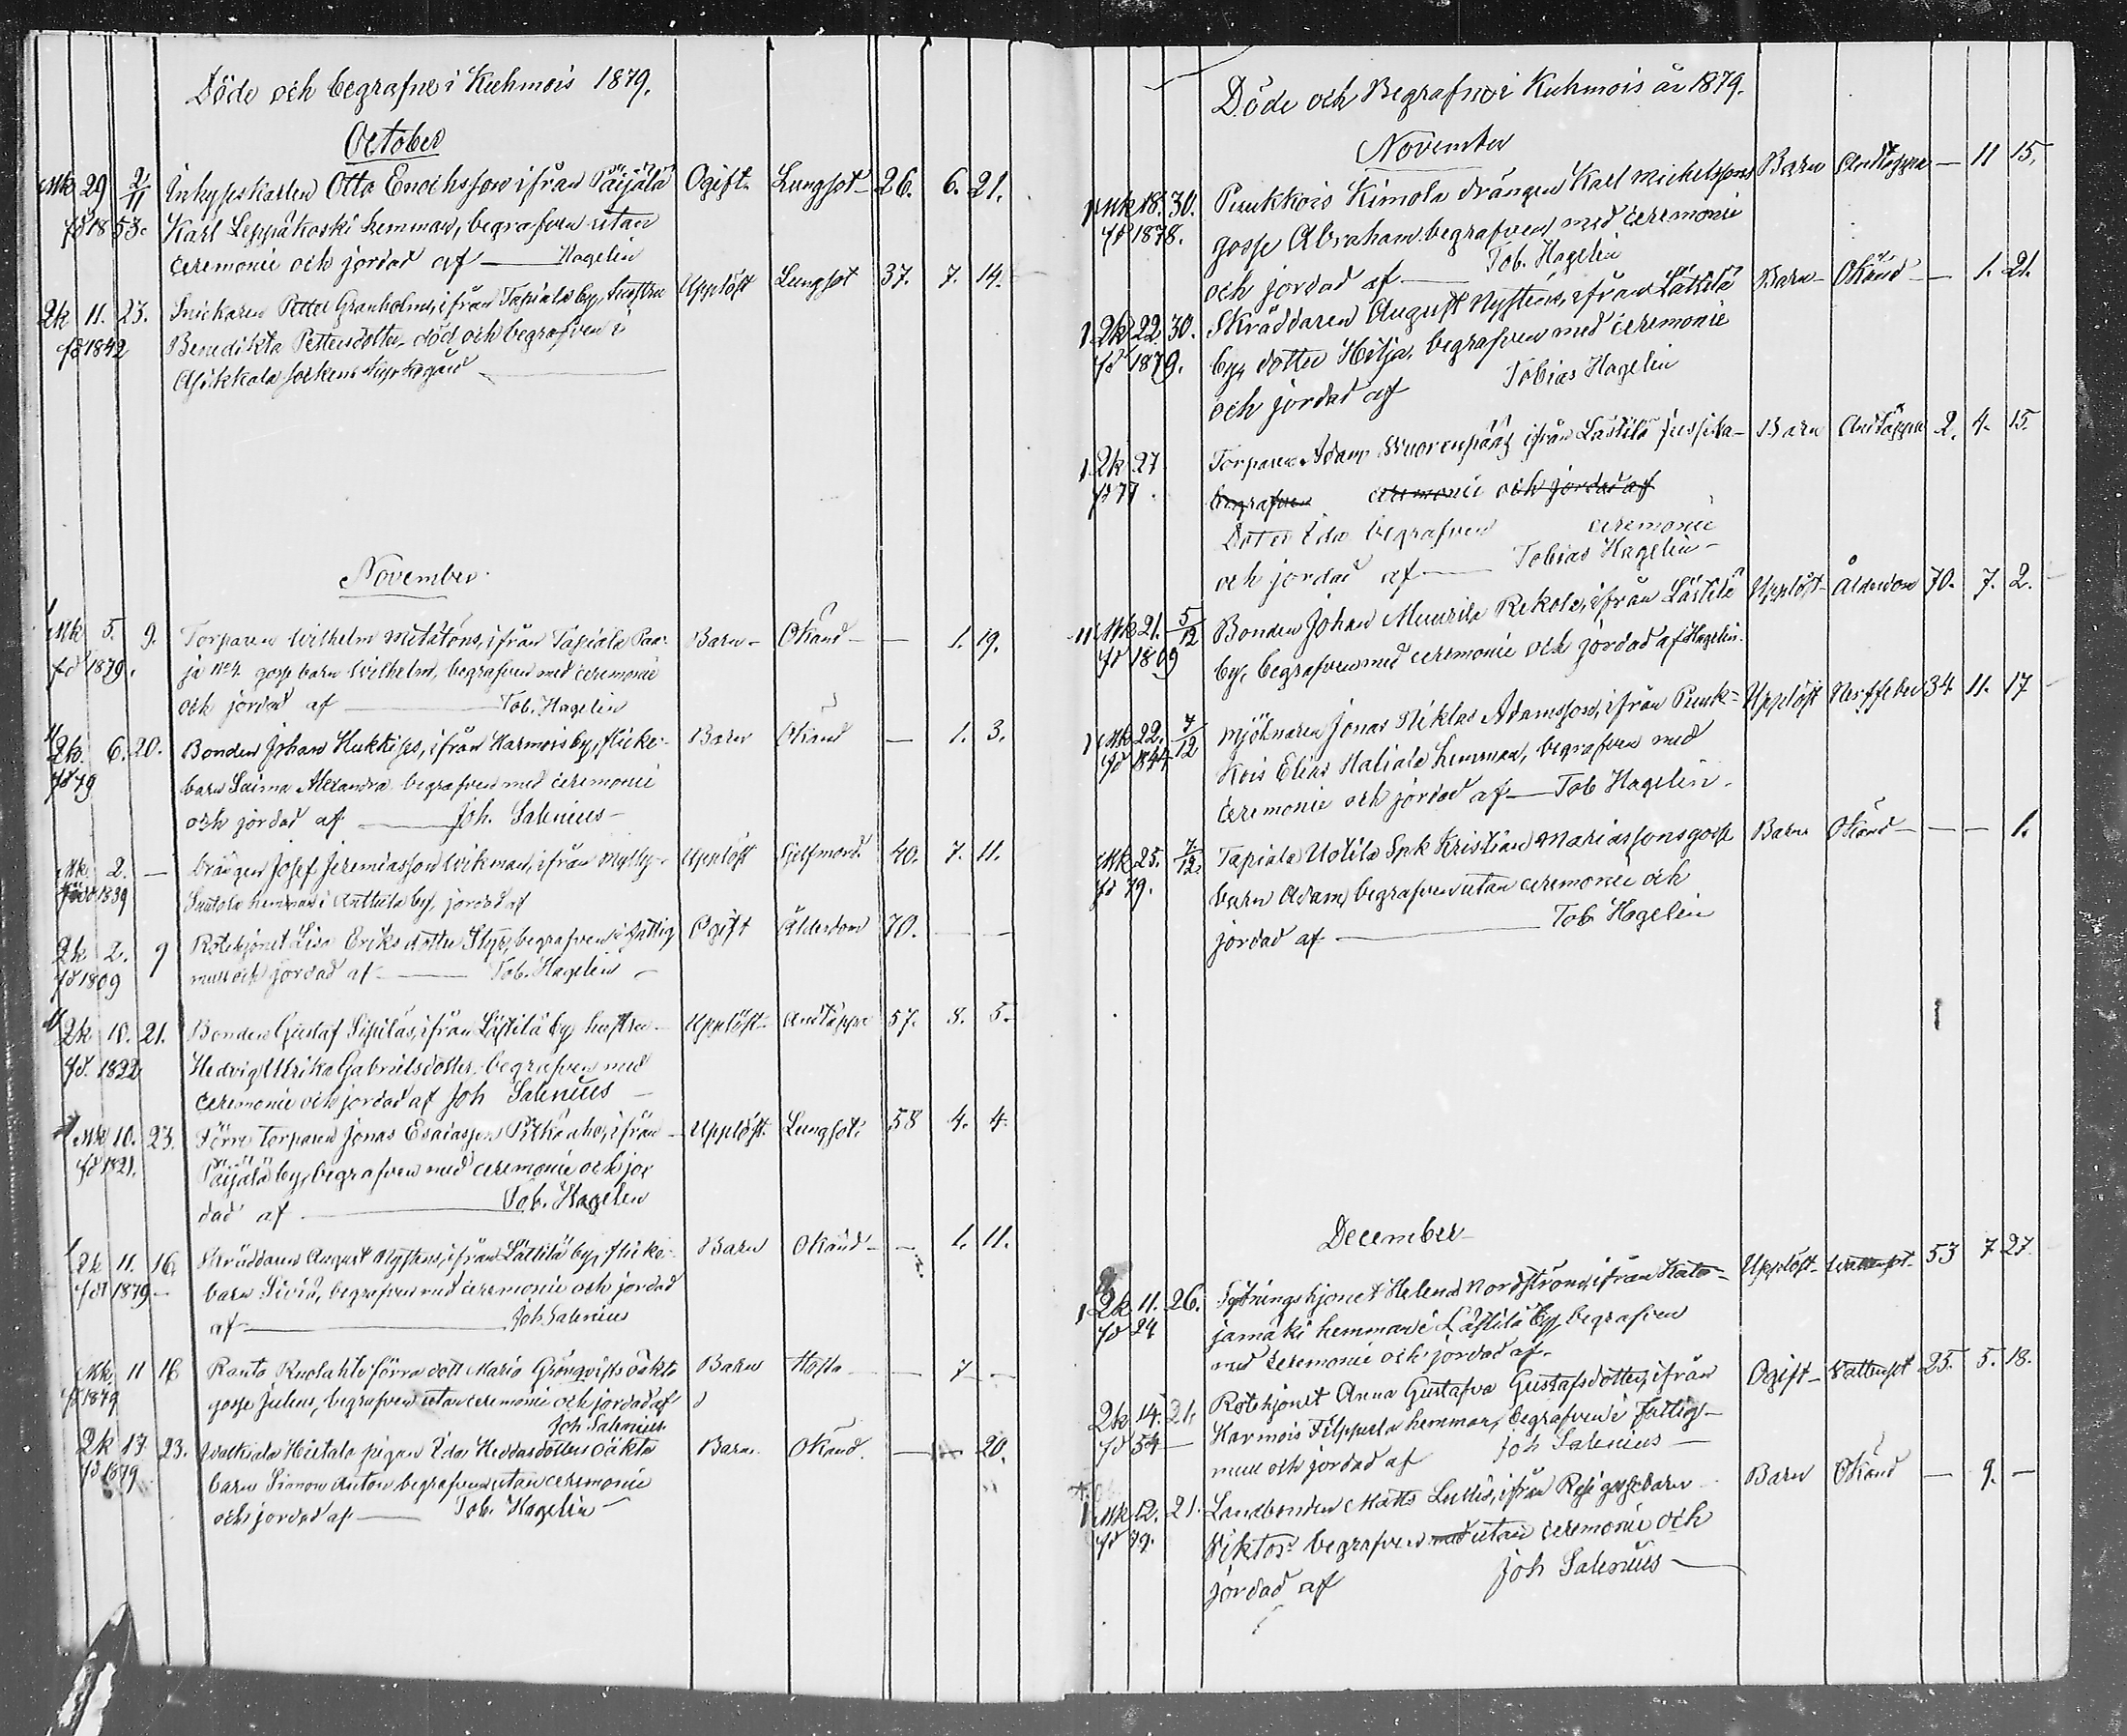 Döde och begrafne i Kuhmois 1879.
October
Mk 29 2/11 Inhyseskarlen Otto Enochsson ifrån Päijälä Ogift Lungsot 26. 6. 21.
fd 1853. Karl Leppäkoski hemman, begrafven utan
ceremonie och jordad af — Hagelin
Qk 11. 23. Snickaren Petter Granholms, ifrån Tapiala by, hustru Upplöst Lungsot 37. 7. 14.
fd 1842 Benedikta Pettersdotter död och begrafven i
Asikkala sockens kyrkogård
November
Mk 5. 9. Torparen Wilhelm ifrån Tapiala Paa- Barn Okänd — 1. 19.
fd 1879. ja No 4. gosse barn Wilhelm, begrafven med ceremonie
och jordad af — Tob. Hagelin
Qk. 6. 20. Bonden Johan ifrån Harmois by, flicke- Barn Okänd — 1. 3.
fd 79 barn Saima Alexandra begrafven med ceremonie
och jordad af — Joh. Salenius
Mk. 2. — Drängen Josef Jeremiasson Wikman, ifrån Mylly- Upplöst Sjelfmord. 40. 7. 11.
född 1839 Suutola hemman i Anttila by, jordad af
Qk 2. 9 Rotehjonet Lisa Eriksdotter Styf, begrafven i fattig Ogift Ålderdom 70. — —
fd 1809 mull och jordad af — Tob. Hagelin
Qk 10. 21. Bonden Gustaf Sipiläs, ifrån Lästilä by hustru Upplöst Andtäppa 57. 8. 5.
fd. 1822 Hedvig Ulrika Gabrielsdotter, begrafven med
ceremonie och jordad af Joh Salenius
Mk 10. 23. Förre torparen Jonas Esaiasson Pitkänho, ifrån Upplöst Lungsot. 58 4. 4.
fd 1821. Päijälä by, begrafven med ceremonie och jor
dad af — Tob. Hagelin
Qk 11. 16. Skräddaren August Nystens, ifrån Lättilä by, flicke- Barn Okänd — 1. 11.
fd 1879 — barn Sivia, begrafven med ceremonie och jordad
af — Joh Salenius
Mk. 11 16 Ranta Kuolahti förra dott Maria Grönqvists oäkta Barn Hosta — 7 —
fd 1879 gosse Julius, begrafven utan ceremonie och jordad af
Joh Salenius
Qk 17. 23. Hietala pigan Ida Heddasdotters oäkta Barn Okänd. — — 20.
fd 1879 barn Simon Anton begrafven utan ceremonie
och jordad af — Tob. Hagelin
Döde och Begrafne i Kuhmois år 1879.
November
1 Mk 18. 30. Puukkois Kimola drängen Karl Michelssons Barn Andtäppa — 11 15.
fd 1878. gosse Abraham begrafven med ceremonie
och jordad af — Tob. Hagelin
1. Qk 22 30. Skräddaren August Nystens, ifrån Lättilä Barn Okänd — 1. 21.
fd 1879. by, dotter Hilja, begrafven med ceremonie
och jordad af Tobias Hagelin
1. Qk 27 Torparen Adam Wuorenpääs ifrån Lästilä Jussila Barn Andtäppa 2. 4. 15.
fd 77. begrafven ceremonie och jordad af
Doter Ida begrafven ceremonie
och jordad af — Tobias Hagelin
Mk 21. 5/12 Bonden Johan Muurila Rekola, ifrån Lästilä Upplöst Ålderdom 70. 7. 2.
fd 1809 by, begrafven med ceremonie och jordad af Hagelin.
1 Mk 22. 7/12 Mjölnaren Jonas Niklas Adamsson, ifrån Puuk- Upplöst Nerffeber 34 11. 17
fd 1844 kois Elias Haliala hemman, begrafven med
ceremonie och jordad af — Tob Hagelin.
Mk 25. 7/12. Tapiala Uotila Spk Kristian Mariassons gosse Barn Okänd — — 1.
fd 79. barn Adam, begrafven utan ceremonie och
jordad af — Tob Hagelin
December
1 Qk 11. 26. Sytningshjonet Helena Nordström, ifrån Kata- Upplöst Vattusot 53 7 27.
fd 24 jamäki hemman i Lästilä by, begrafven
med ceremonie och jordad af
Qk 14. 21. Rotehjonet Anna Gustafva Gustafsdotter, ifrån Ogift Vattusot 25. 5. 18.
fd 54 — Harmois Filppula hemman, begrafven i fattig-
mull och jordad af Joh Salenius
1 Mk 12. 21. Landbonden Matts ifrån gossebarn Barn Okänd — 9. —
fd 79. Viktor begrafven med utan ceremonie och
jordad af Joh Salenius